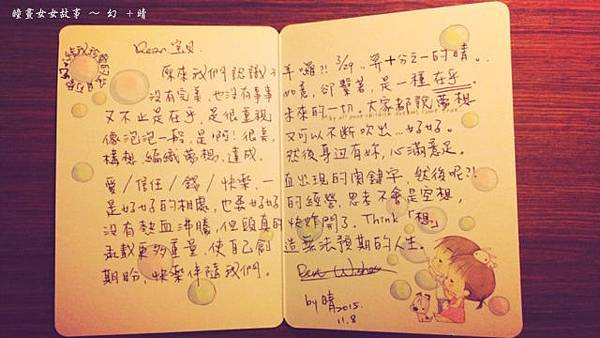 瞳畫女女故事 ~ 幻 + 晴
Dear 宝貝.
原來我們認識 年囉?! 3/29... 算十分之一的晴。
沒有完美,也沒有事事如意,卻繫著,是一種在乎。
又不止是在乎,是很重視未來的一切,大家都說夢想
像泡泡一般,是啊!很美,又可以不斷吹出...好好。
構想,編織夢想,達成.然後身边有妳,心滿意足。
愛/信任/錢/快樂,一直出現的関鍵字,然後呢?!
是好好的相處,也要好好的經營,思考不會是空想,
沒有熱血沸騰,但頭真的快炸開了. Think「想」
承載更多重量,使自己創造無法預期的人生。
期盼,快樂伴隨我們。
by 晴 2015.
11.8